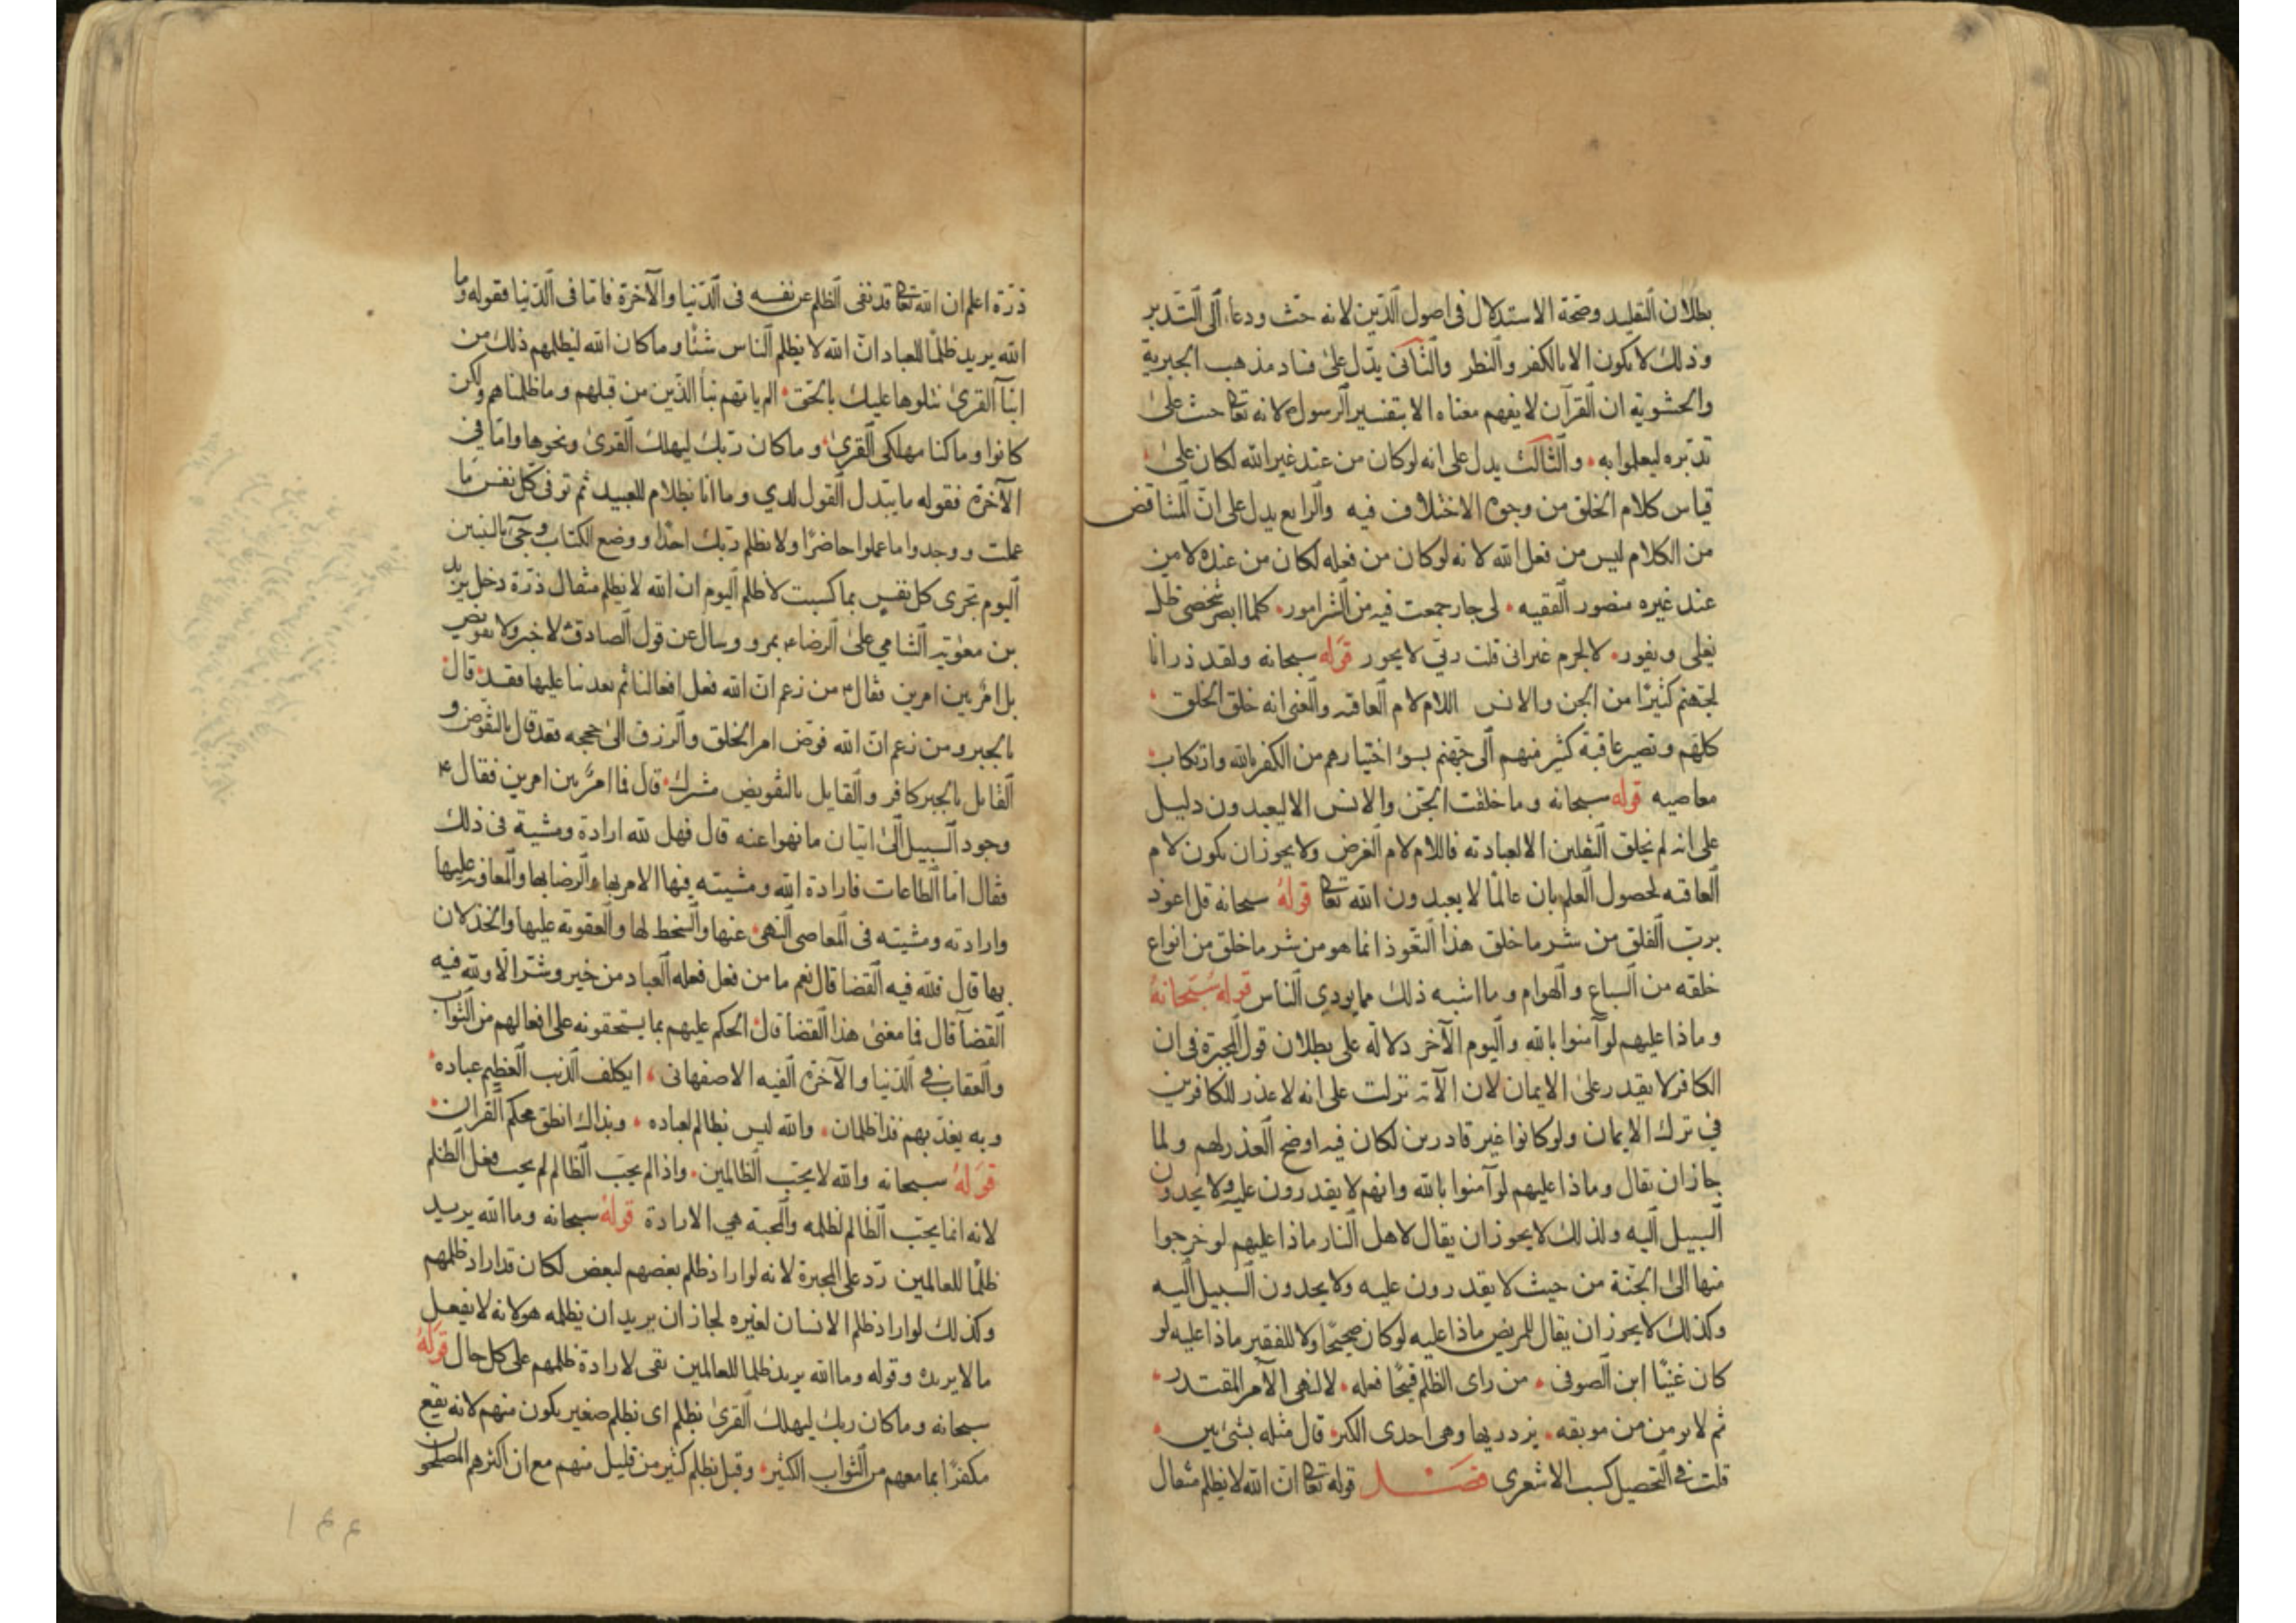 بطلان التقليد وصحة الاستدلال في اصول الدين لانه حث ودعاء الى التدبر
وذلك لا يكون الا بالكفر والنظر والثاني يدل على فساد مذهب الجبرية
والحشوية ان القرآن لا يفهم معناه الا بتفسير الرسول لانه تعا حث على
تدبره ليعلموا به والثالث يدل على انه لو كان من عند غير الله لكان على
قياس كلام الخلق من وجوه الاختلاف فيه والرابع يدل على ان المتناقض
من الكلام ليس من فعل الله لانه لو كان من فعله لكان من عنده لا من
عند غيره منصور الفقيه لي جار جمعت فيه من الشر امور كلما ابصر شخصي ظل
يغلي ويفور لا لجرم غير اني قلت ربي لا يجور قوله سبحانه ولقد ذرانا
لجهنم كثيرا من الجن والانس اللام لام العاقبة والمعنى انه خلق الخلق
كلهم وتصير عاقبة كثير منهم الى جهنم بسوء اختيارهم من الكفر بالله وارتكاب
معاصيه قوله سبحانه وما خلقت الجن والانس الا ليعبدون دليل
على انه لم يخلق الثقلين الا لعبادته فاللام لام الغرض ولا يجوز ان يكون لام
العاقبة لحصول العلم بان عالما لا يعبدون الله تعا قوله سبحانه قل اعوذ
برب الفلق من شر ما خلق هذا التعوذ انما هو من شر ما خلق من انواع
خلقه من السباع والهوام وما اشبه ذلك مما يودي الناس قوله سبحانه
وماذا عليهم لو آمنوا بالله واليوم الآخر دلالة على بطلان قول المجبرة في ان
الكافر لا يقدر على الايمان لان الآية نزلت على انه لا عذر للكافرين
في ترك الايمان ولو كانوا غير قادرين لكان فيه اوضح العذر لهم ولما
جاز ان يقال وماذا عليهم لو آمنوا بالله وانهم لا يقدرون عليه ولا يجدون
السبيل اليه ولذلك لا يجوز ان يقال لاهل النار ماذا عليهم لو خرجوا
منها الى الجنة من حيث لا يقدرون عليه ولا يجدون السبيل اليه
وكذلك لا يجوز ان يقال للمريض ماذا عليه لو كان صحيحا ولا للفقير ماذا عليه لو
كان غنيا ابن الصوفي من راى الظلم قبيحا فعله لا لنهي الآمر المقتدر
ثم لا يومن من موبقه يزدريها وهي احدى الكبر قال مثله بشئ بين
قلت في التحصيل كسب الاشعري فصل قوله تعا ان الله لا يظلم مثقال
ذرة اعلم ان الله تعا قد نفى الظلم عن نفسه في الدنيا والآخرة فاما في الدنيا فقوله وما
الله يريد ظلما للعباد ان الله لا يظلم الناس شيئا وما كان الله ليظلمهم ذلك من
انبآ القرى نتلوها عليك بالحق الم ياتهم نبأ الذين من قبلهم وما ظلمناهم ولكن
كانوا وما كنا مهلكي القرى وما كان ربك ليهلك القرى ونحوها واما في
الآخرة فقوله ما يبدل القول لدي وما انا بظلام للعبيد ثم توفى كل نفس ما
عملت ووجدوا ما عملوا حاضرا ولا يظلم ربك احدا ووضع الكتاب وجئ بالنبيين
اليوم تجزى كل نفس بما كسبت لا ظلم اليوم ان الله لا يظلم مثقال ذرة دخل يزيد
بن معوية الشامي على الرضا ع بمرو وسال عن قول الصادق لا جبر ولا تفويض
بل امر بين امرين فقال ع من زعم ان الله فعل افعالنا ثم يعذبنا عليها فقد قال
بالجبر ومن زعم ان الله فوض امر الخلق والرزق الى حججه فقد قال بالتفويض و
القايل بالجبر كافر والقايل بالتفويض مشرك قال فما امر بين امرين فقال ع
وجود السبيل الى اتيان ما نهوا عنه قال فهل لله ارادة ومشية في ذلك
فقال اما الطاعات فارادة الله ومشيته فيها الامر بها والرضا بها والمعاونة عليها
وارادته ومشيته في المعاصي النهي عنها والسخط لها والعقوبة عليها والخذلان
بها قال فلله فيه القضا قال نعم ما من فعل فعله العباد من خير وشر الا ولله فيه
القضآ قال فما معنى هذا القضا قال الحكم عليهم بما يستحقونه على افعالهم من الثواب
والعقاب في الدنيا والآخرة الفيه الاصفهاني ايكلف الذنب العظيم عباده
وبه يعذبهم فذا ظلمان والله ليس بظالم لعباده وبذاك انطق محكم القران
قوله سبحانه والله لا يحب الظالمين واذا لم يحب الظالم لم يحب فعل الظلم
لانه انما يحب الظالم لظلمه والمحبة هي الارادة قوله سبحانه وما الله يريد
ظلما للعالمين رد على المجبرة لانه لو اراد ظلم بعضهم لبعض لكان قد اراد ظلمهم
وكذلك لو اراد ظلم الانسان لغيره لجاز ان يريد ان يظلمه هو لانه لا يفعل
ما لا يريده وقوله وما الله يريد ظلما للعالمين نفى لارادة ظلمهم على كل حال قوله
سبحانه وما كان ربك ليهلك القرى بظلم اى بظلم صغير يكون منهم لانه يقع
مكفرا بما معهم من الثواب الكثير وقيل بظلم كثير من قليل منهم مع ان اكثرهم المصلحون